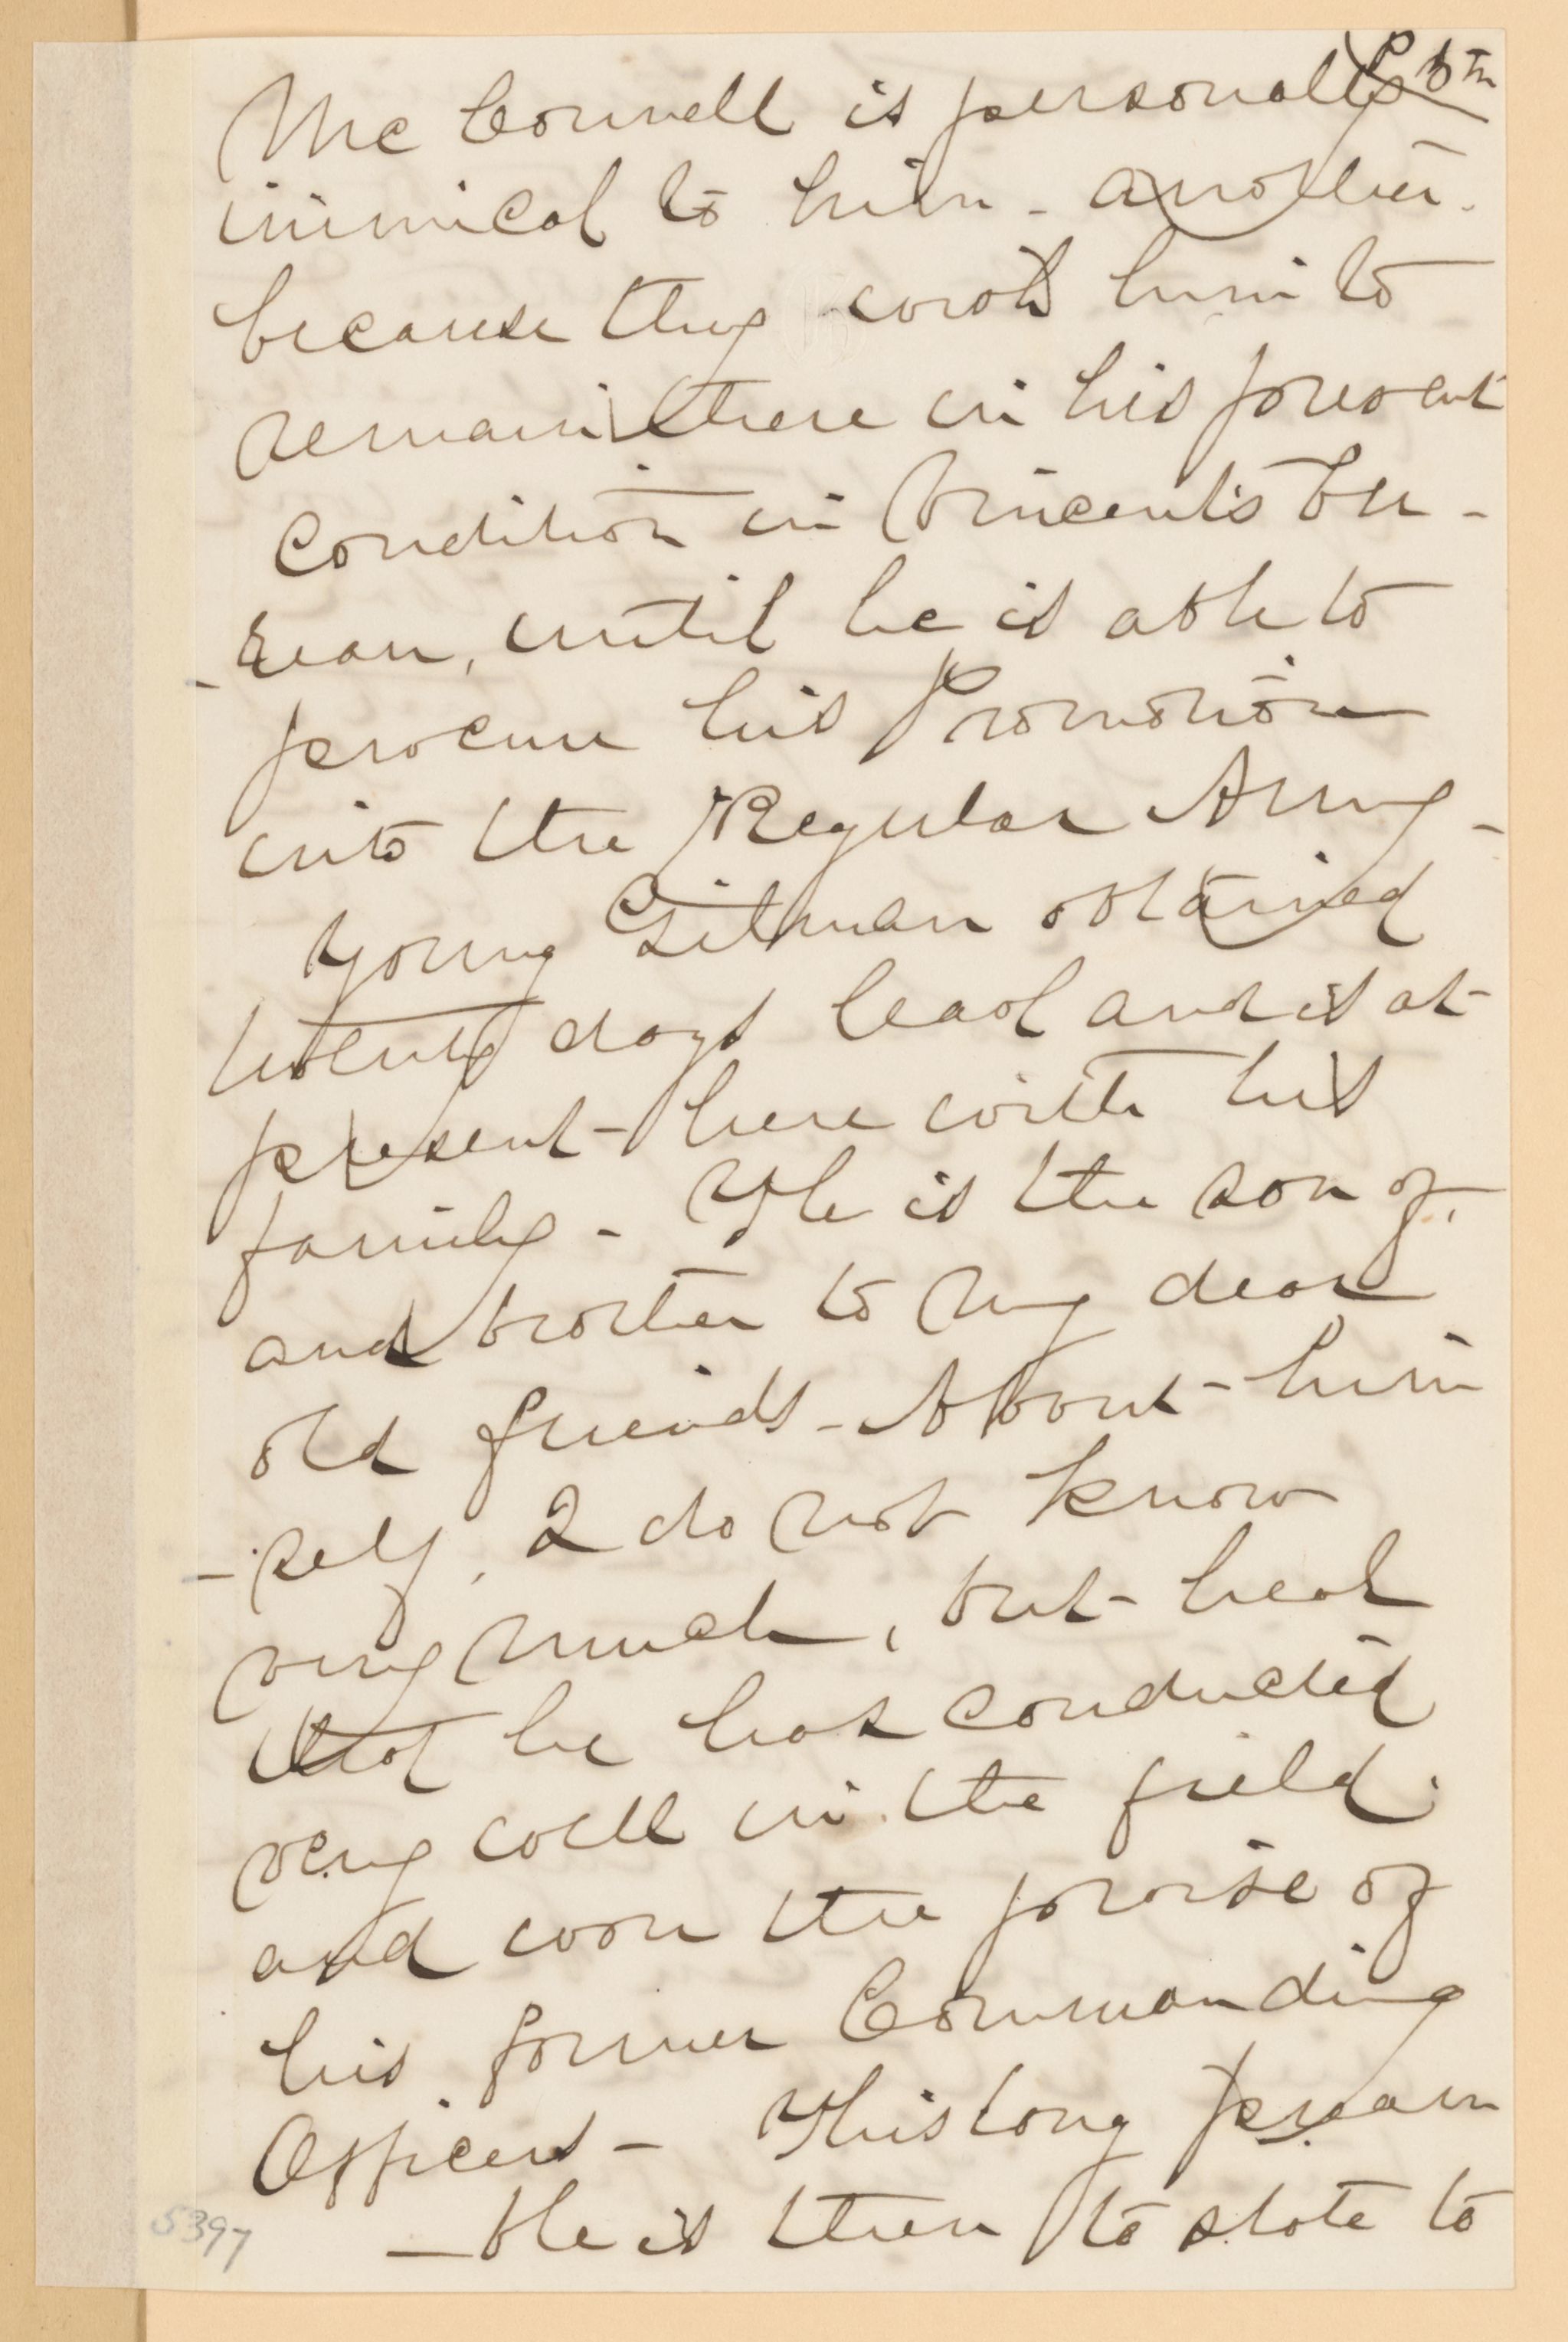 P 6th
McConnell is personally
inimical to him - another
because they want him to
remain there in his present
condition in Vincent's Bu-
-reau, until he is able to
procure his Promotion
into the Regular Army -
Young Gilman obtained
twenty days leave and is at
present - here with his
family - He is the son of
and brother to my dear
old friends - About - him
-self, I do not know
very much, but - hear
that he has conducted
very well in the field.
and won the praise of
his former Commanding
Officers - This long pream
-ble is then to state to
5397